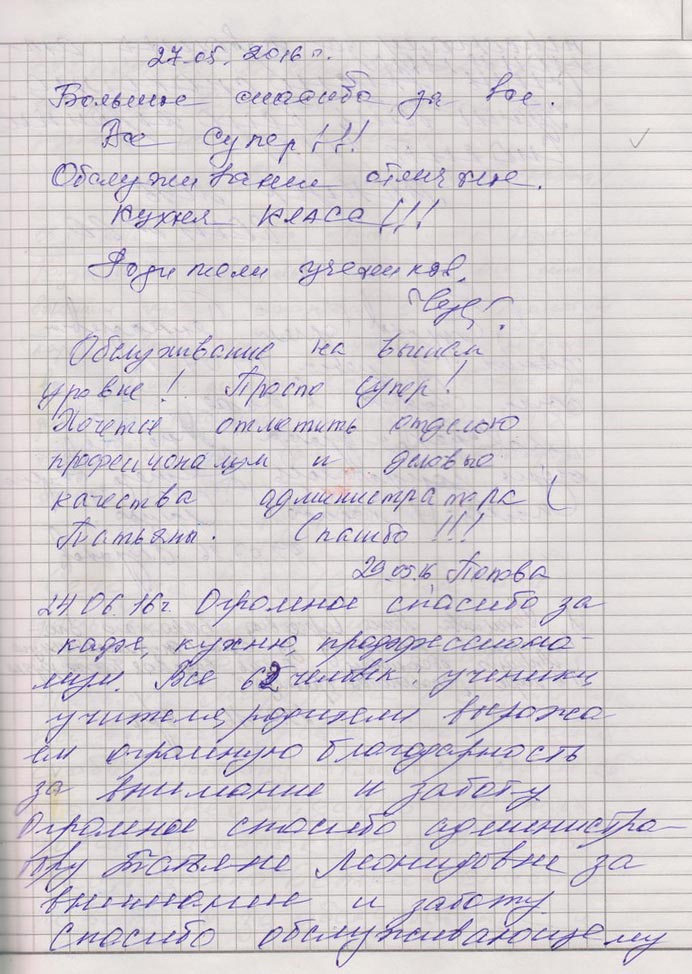 27.05. 2016 г.
Большое спасибо за все.
Все супер!!!
Обслуживание отличное.
Кухня класс!!!
Родители учеников.
Обслуживание на высшем
уровне! Просто супер!
Хочется отметить отдельно
профессионализм и деловые
качества администратора (
Татьяны. Спасибо!!!
29.05.16 Попова
24.06.16г. Огромное спасибо за
кафе, кухню, профессиона-
лизм. Все 62 человек, ученики,
учителя, родители выража
ем огромную благодарность
за внимание и заботу
Огромное спасибо администра-
тору Татьяне Леонидовне за
внимание и заботу
Спасибо обслуживающему